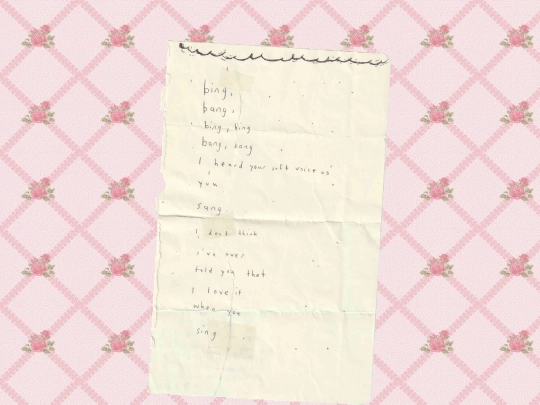 bing,
bang,
bing, bing
bang, bang
I heard your soft voice as
you
sang
I don't think
i've ever
told you that
I love it
when you
sing